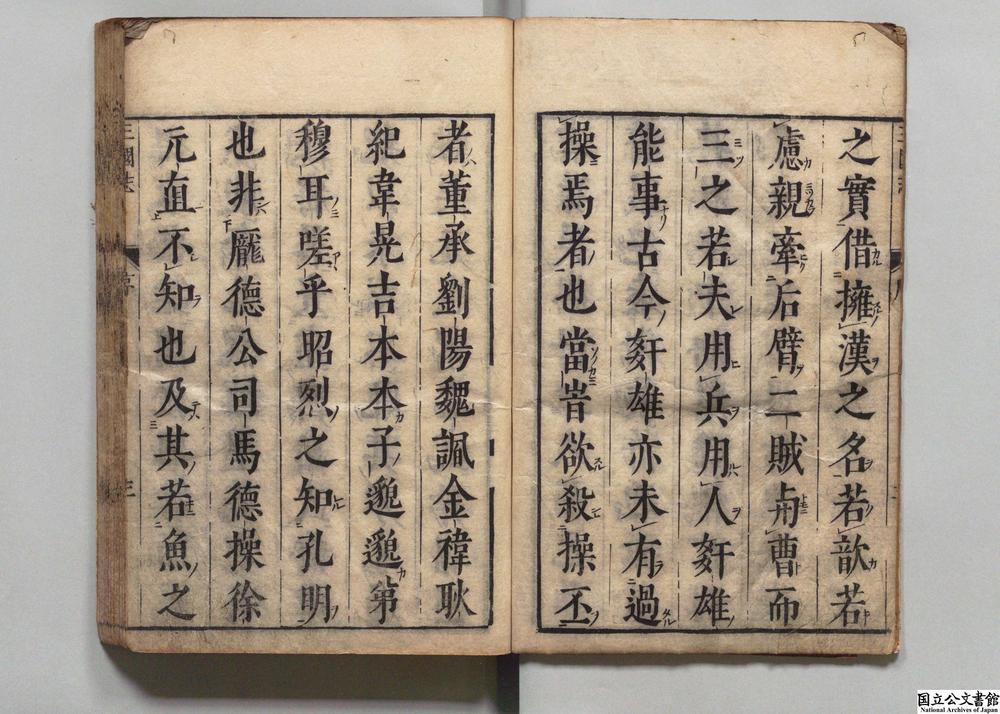 之實借擁漢之名若歆若
慮親牽后臂二賊与曹而
三之若夫用兵用人姧雄
能事古今姧雄亦未有過
操焉者也當旹欲殺操丕
者董承劉陽魏諷金禕耿
紀韋晃吉本本子邈邈第
穆耳嗟乎昭烈之知孔明
也非龐德公司馬德操徐
元直不知也及其若魚之
三國志 序 三
国立公文書館
National Archives of Japan